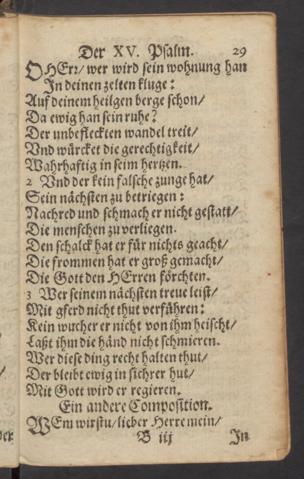 Der XV. Psalm. 29
O HErr/ wer wird sein wohnung han
In deinen zelten kluge:
Auf deinem heilgen berge schon/
Da ewig han sein ruhe?
Der unbefleckten wandel treit/
Vnd würcket die gerechtigkeit/
Wahrhaftig in seim hertzen.
2 Vnd der kein falsche zunge hat/
Sein nächsten zu betriegen:
Nachred und schmach er nicht gestatt/
Die menschen zu verliegen.
Den schalck hat er für nichts geacht/
Die frommen hat er groß gemacht/
Die Gott den HErren förchten.
3 Wer seinem nächsten treue leist/
Mit gferd nicht thut verführen:
Kein wucher er nicht von ihm heischt/
Laßt ihm die händ nicht schmieren.
Wer diese ding recht halten thut/
Der bleibt ewig in sichrer hut/
Mit Gott wird er regieren.
Ein andere Composition.
WEm wirstu/ lieber Herre mein/
B iij In